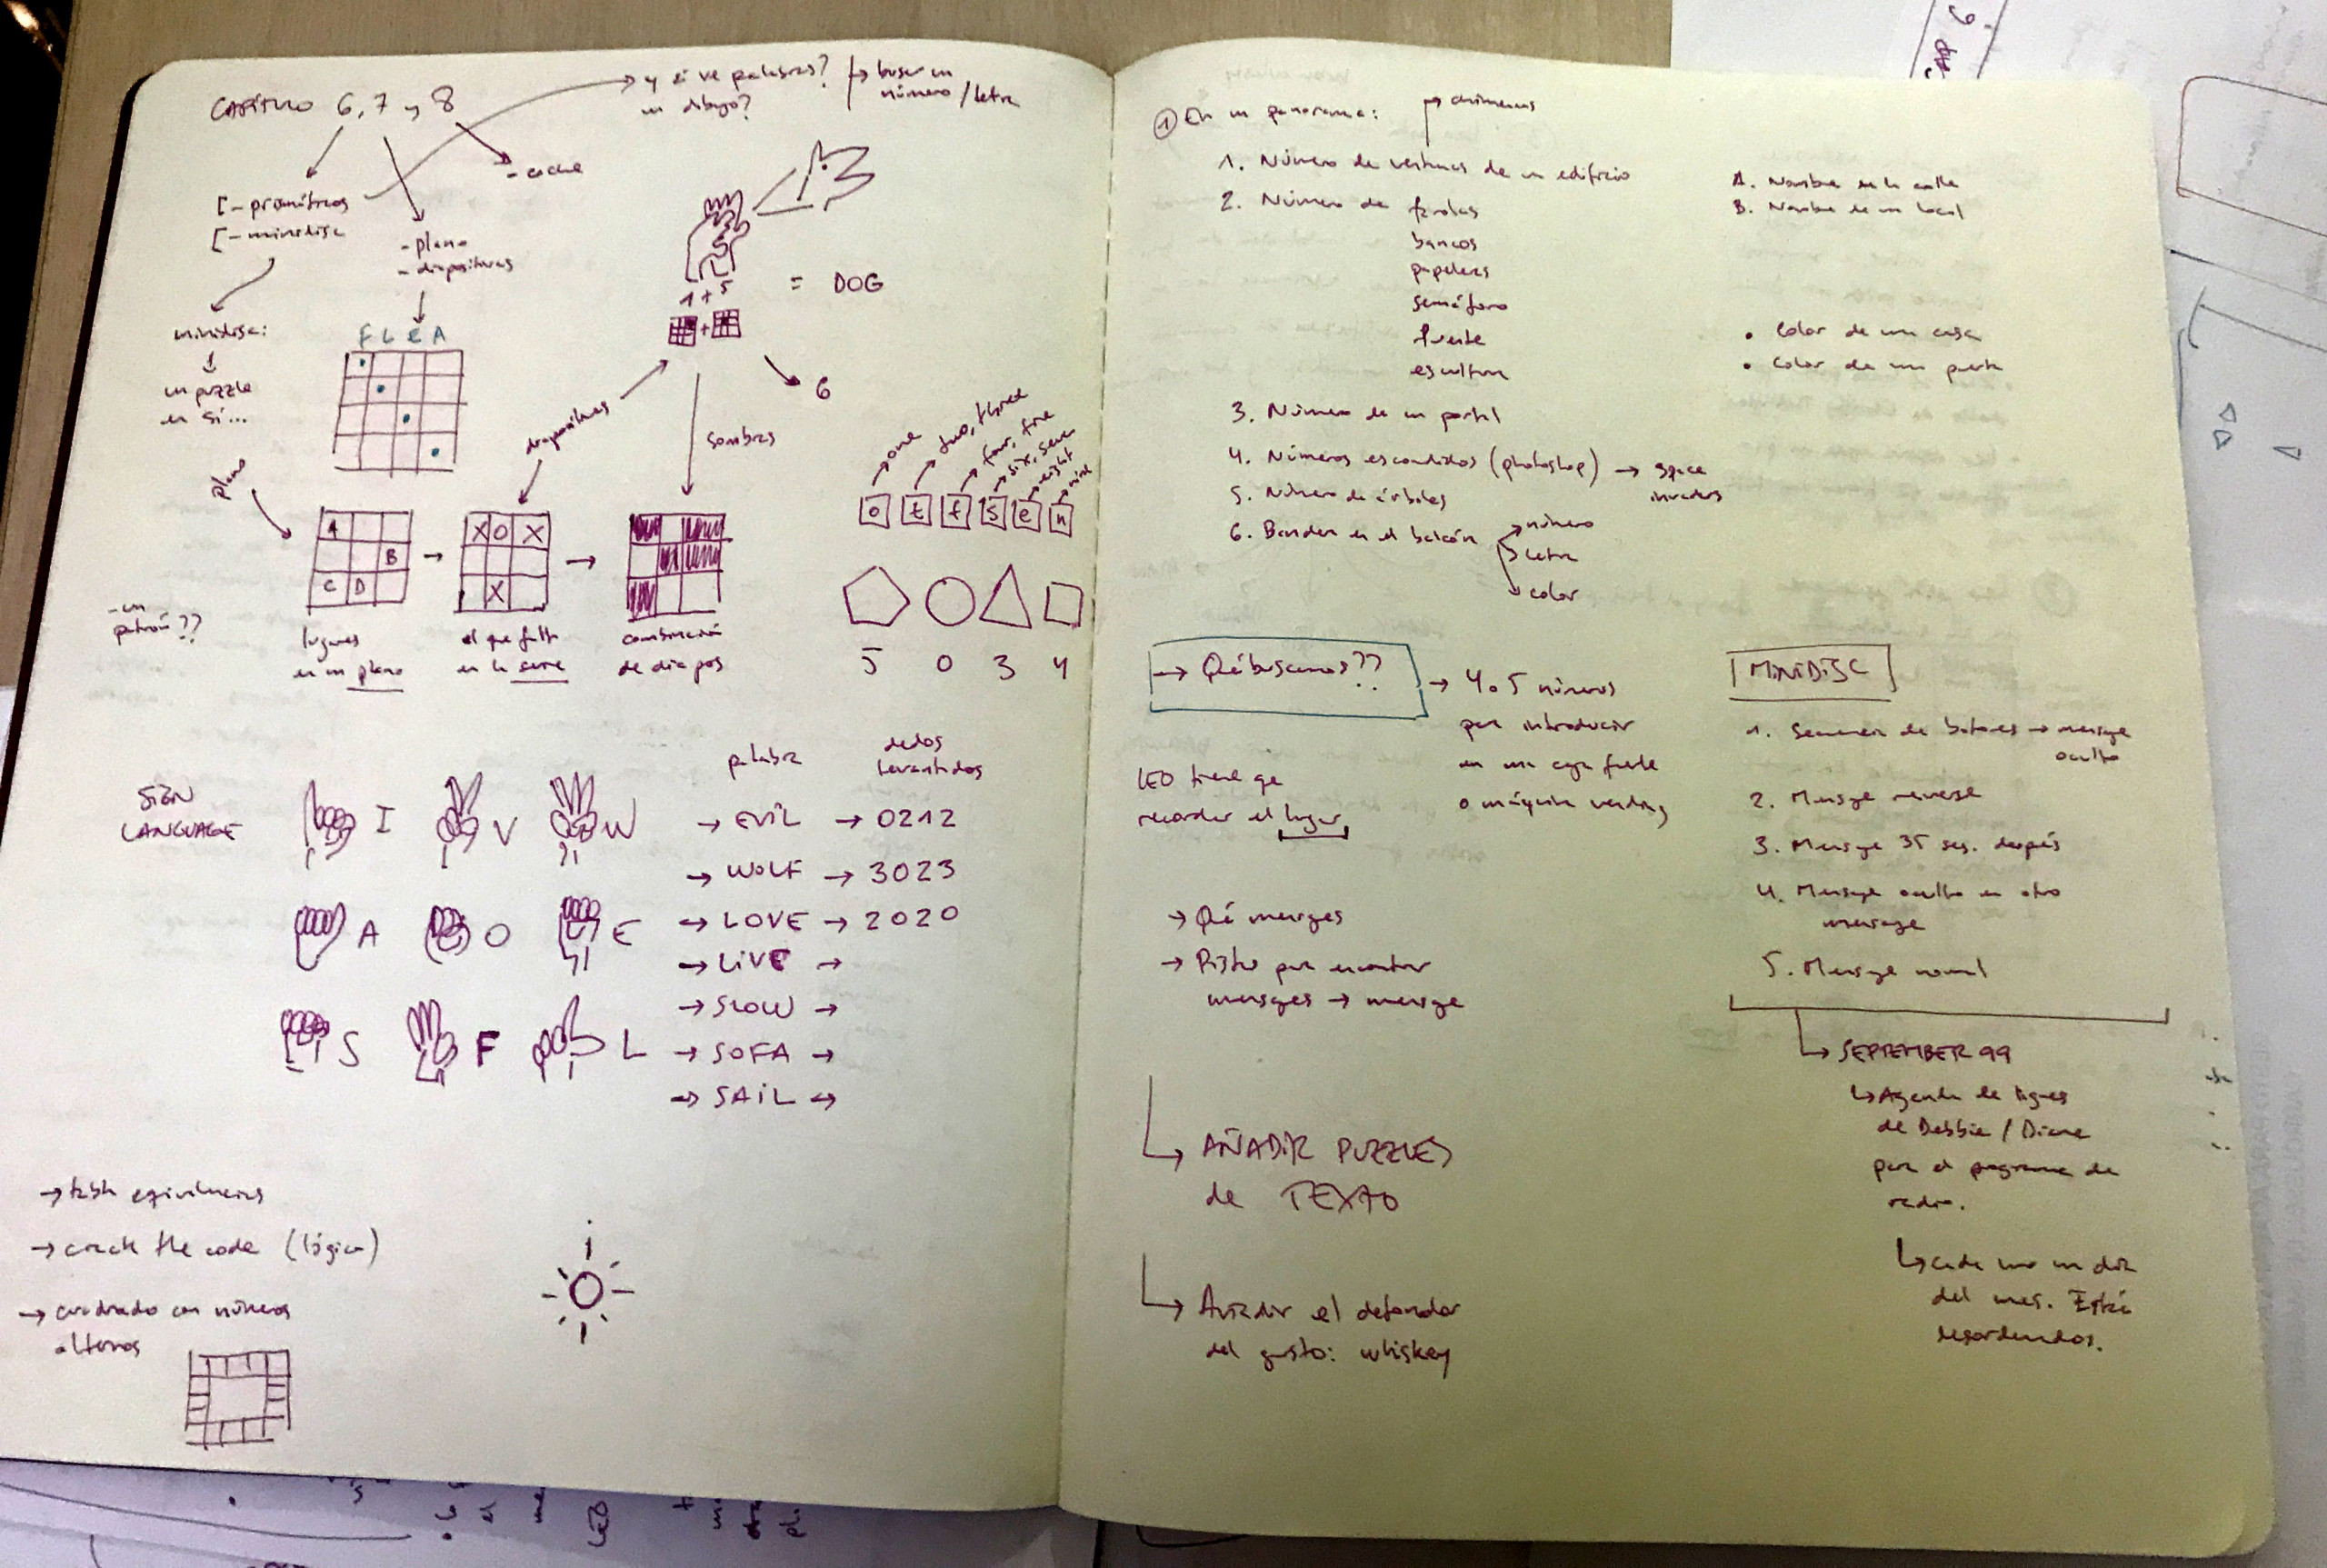 CAPÍTULO 6, 7 y 8
→ y si ve palabras?
un dibujo?
→ buscar un
número / letra
- coche
- prismáticos
- minidisc
- plano
- diapositivas
minidisc:
un puzzle
en sí...
FLEA
1 + 5
= DOG
6
diapositivas
sombras
plano
one
two, three
four, five
six, seven
eight
nine
o t f s e n
A
B
C D
X O X
X
- un
patrón??
lugares
en un plano
el que falta
en la serie
combinación
de diapos
5 0 3 4
SIGN
LANGUAGE
I V W
A O E
S F L
palabra
dedos
levantados
→ EVIL → 0212
→ WOLF → 3023
→ LOVE → 2020
→ LIVE →
→ SLOW →
→ SOFA →
→ SAIL →
→ tabla equivalencias
→ crack the code (lógica)
→ cuadrado con números
alternos
① En un panorama:
→ chimeneas
1. Número de ventanas de un edificio
2. Número de farolas
bancos
papeleras
semáforo
fuente
escultura
3. Número de un portal
4. Números escondidos (photoshop) → space
invaders
5. Número de árboles
6. Bandera en el balcón
número
letra
color
A. Nombre de la calle
B. Nombre de un local
• Color de una casa
• Color de una puerta
→ Qué buscamos??
→ 4 o 5 números
para introducir
en una caja fuerte
o máquina vending
LEO tiene que
recordar el lugar
→ Qué mensajes
→ Pistas para encontrar
mensajes → mensaje
→ AÑADIR PUZZLES
de TEXTO
→ Añadir el detonador
del gusto: whiskey
MINIDISC
1. Secuencia de botones → mensaje
oculto
2. Mensaje reverse
3. Mensaje 35 seg. después
4. Mensaje oculto en otro
mensaje
5. Mensaje normal
→ SEPTEMBER 99
↳ Agenda de lugares
de Debbie / Diane
para el programa de
radio.
↳ cada uno un día
del mes. Están
desordenados.
LEO